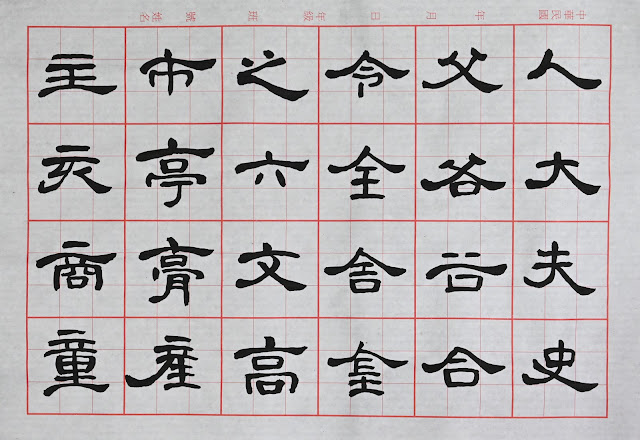 中華民國 年 月 日 年級 班 號 姓名
人大夫史
父谷谷合
令全舍金
之六文高
市亭膏產
主亥商童